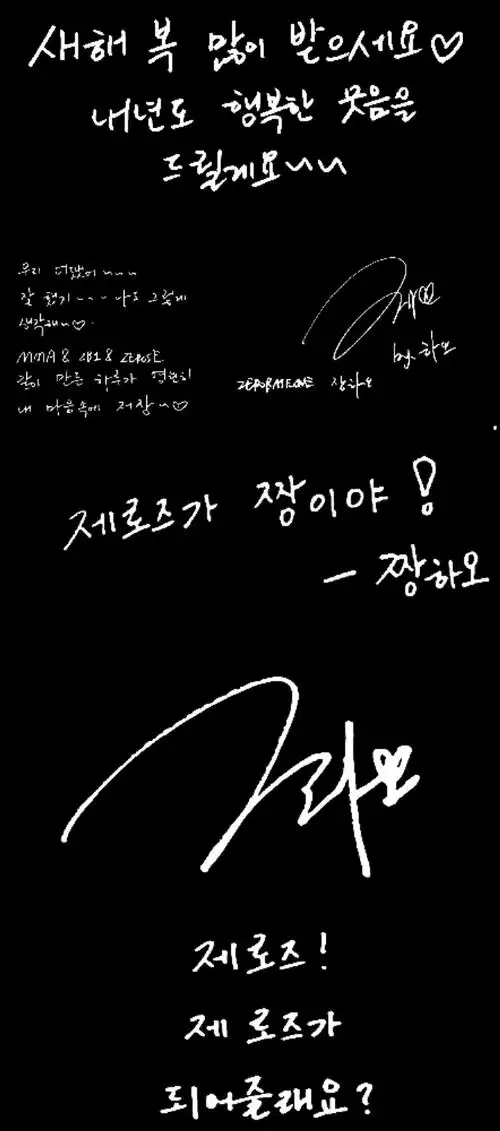 새해 복 많이 받으세요♡
내년도 행복한 웃음을
드릴게요~~
우리 어땠어~~~
잘 했지~~~ 나도 그렇게
생각해~♡
MMA & ZB1 & ZEROSE
같이 만든 하루가 영원히
내 마음속에 저장~♡
하오
by. 하오
ZEROBASEONE 장하오
제로즈가 짱이야!
- 짱하오
하오
제로즈!
제 로즈가
되어줄래요?